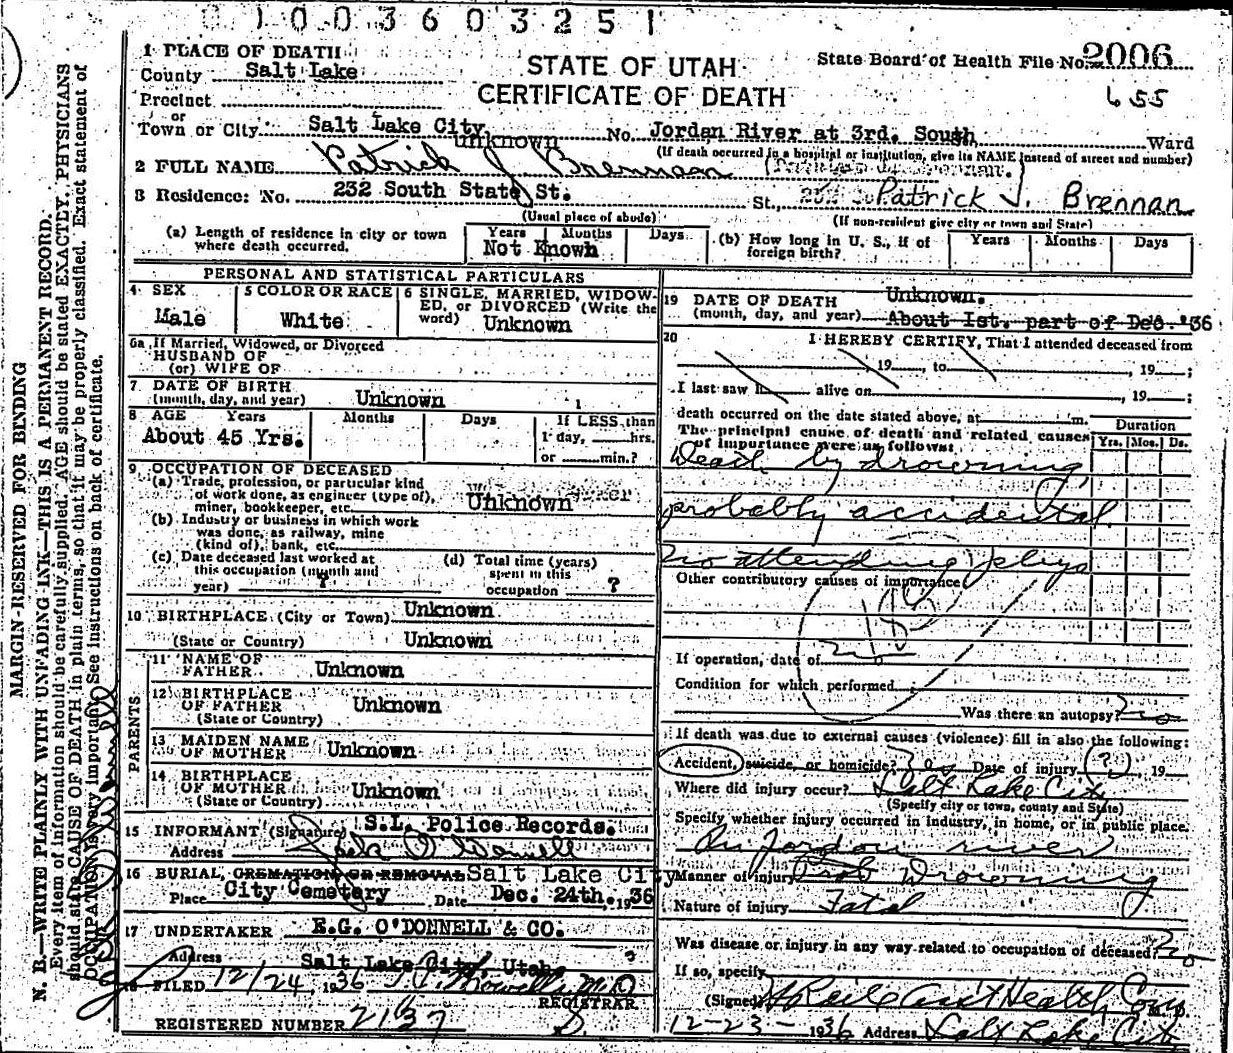 1003603251
1 PLACE OF DEATH
STATE OF UTAH
State Board of Health File No. 2006
County Salt Lake
CERTIFICATE OF DEATH
655
Precinct
or
Town or City Salt Lake City No. Jordan River at 3rd. South Ward
unknown
(If death occurred in a hospital or institution, give its NAME instead of street and number)
2 FULL NAME Patrick J Brennan
3 Residence: No. 232 South State St. St., Patrick J. Brennan
(Usual place of abode)
(If non-resident give city or town and State)
(a) Length of residence in city or town where death occurred. Years Months Days
Not Known
(b) How long in U. S., if of foreign birth? Years Months Days
PERSONAL AND STATISTICAL PARTICULARS
4 SEX
Male
5 COLOR OR RACE
White
6 SINGLE, MARRIED, WIDOWED, or DIVORCED (Write the word) Unknown
6a If Married, Widowed, or Divorced
HUSBAND OF
(or) WIFE OF
7 DATE OF BIRTH
(month, day, and year) Unknown
8 AGE Years Months Days If LESS than
About 45 Yrs. 1 day, hrs.
or min.?
9 OCCUPATION OF DECEASED
(a) Trade, profession, or particular kind
of work done, as engineer (type of),
miner, bookkeeper, etc. Unknown
(b) Industry or business in which work
was done, as railway, mine
(kind of), bank, etc.
(c) Date deceased last worked at
this occupation (month and
year) ?
(d) Total time (years)
spent in this
occupation ?
10 BIRTHPLACE (City or Town) Unknown
(State or Country) Unknown
PARENTS
11 NAME OF
FATHER Unknown
12 BIRTHPLACE
OF FATHER Unknown
(State or Country)
13 MAIDEN NAME
OF MOTHER Unknown
14 BIRTHPLACE
OF MOTHER Unknown
(State or Country)
15 INFORMANT (Signature) S.L. Police Records.
Address Jack O'Donnell
16 BURIAL, CREMATION, OR REMOVAL Salt Lake City
Place City Cemetery Date Dec. 24th. 1936
17 UNDERTAKER E.G. O'DONNELL & CO.
Address Salt Lake City, Utah
18 FILED 12/24, 1936 M.D.
REGISTRAR
REGISTERED NUMBER 2137
19 DATE OF DEATH Unknown.
(month, day, and year) About 1st. part of Dec. '36
20 I HEREBY CERTIFY, That I attended deceased from
, 19 , to , 19 ;
I last saw h alive on , 19 ;
death occurred on the date stated above, at m.
Duration
The principal cause of death and related causes
of importance were as follows:
Yrs. Mos. Ds.
Death by drowning,
probably accidental.
No attending Phys
Other contributory causes of importance:
If operation, date of no
Condition for which performed
Was there an autopsy? no
If death was due to external causes (violence) fill in also the following:
Accident, suicide, or homicide? Yes Date of injury (?), 19
Where did injury occur? Salt Lake City
(Specify city or town, county and State)
Specify whether injury occurred in industry, in home, or in public place.
In Jordon river
Manner of injury Prob Drowning
Nature of injury Fatal
Was disease or injury in any way related to occupation of deceased? no
If so, specify
(Signed) Ass't Health Com M. D.
12-23- 1936 Address Salt Lake City
MARGIN RESERVED FOR BINDING
N. B.—WRITE PLAINLY WITH UNFADING INK—THIS IS A PERMANENT RECORD.
Every item of information should be carefully supplied. AGE should be stated EXACTLY. PHYSICIANS
should state CAUSE OF DEATH in plain terms, so that it may be properly classified. Exact statement of
OCCUPATION is very important. See instructions on back of certificate.